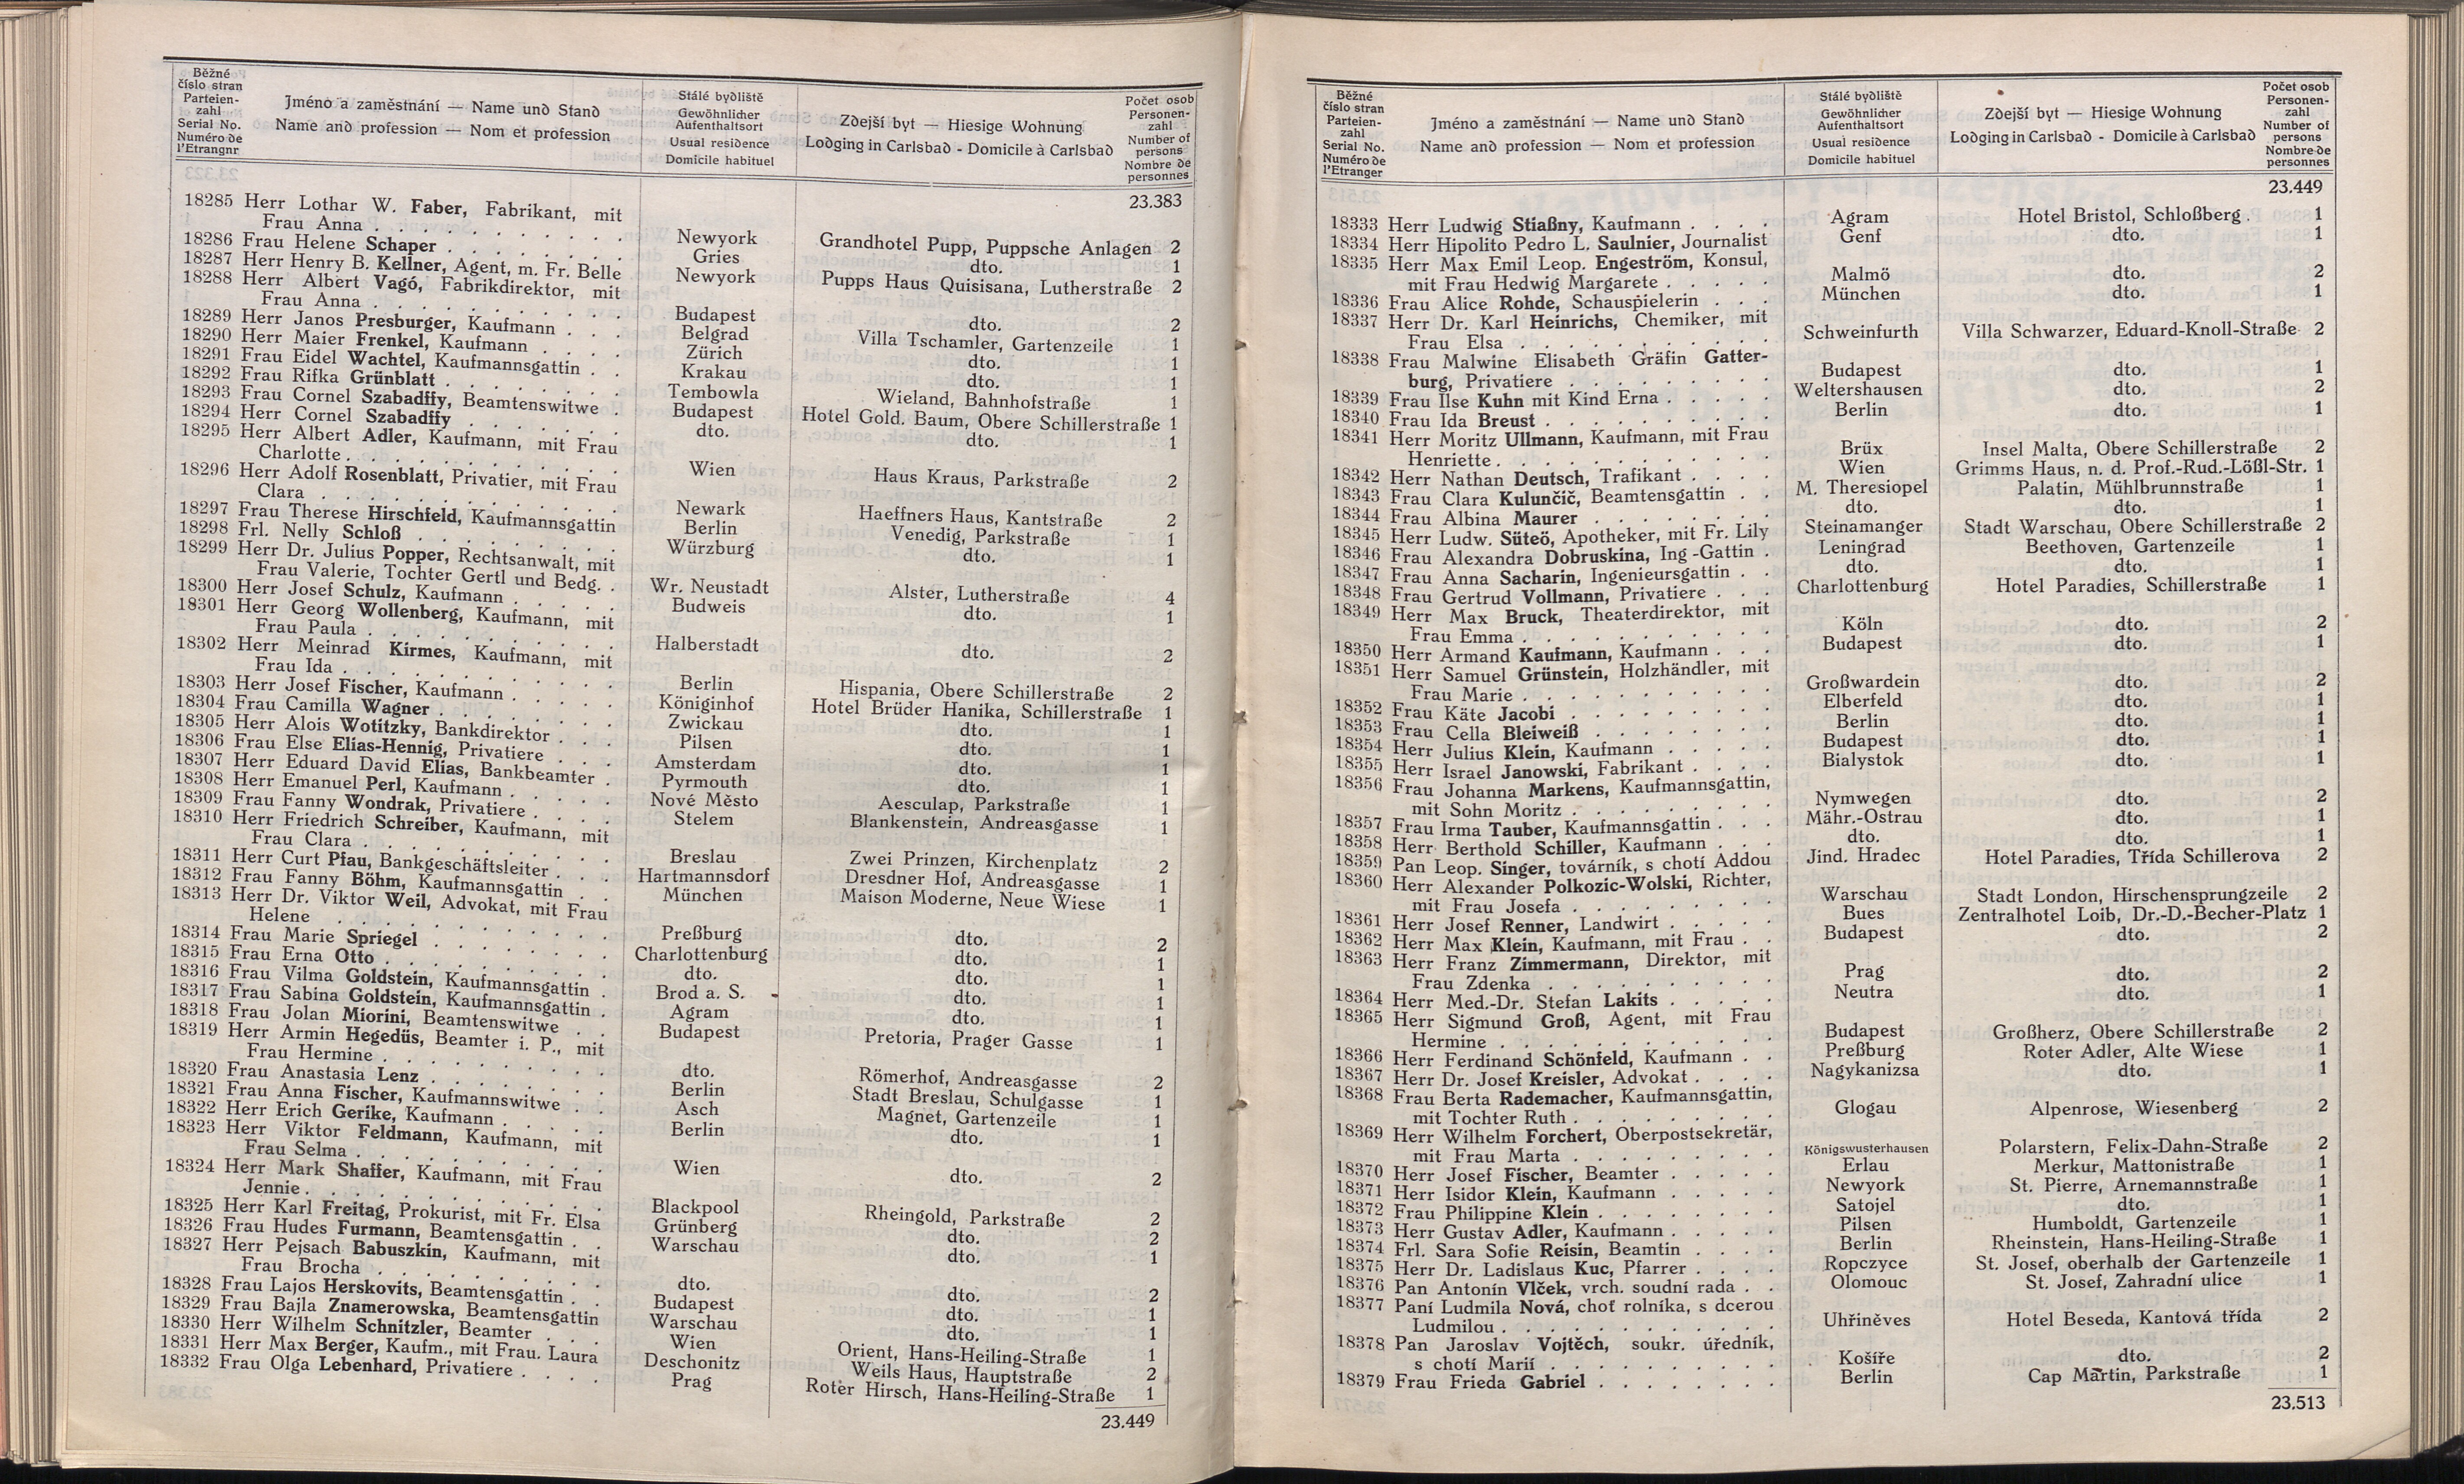 Běžné
číslo stran
Parteien-
zahl
Serial No.
Numéro de
l'Etrangnr
Jméno a zaměstnání — Name und Stand
Name and profession — Nom et profession
Stálé bydliště
Gewöhnlicher
Aufenthaltsort
Usual residence
Domicile habituel
Zdejší byt — Hiesige Wohnung
Lodging in Carlsbad - Domicile à Carlsbad
Počet osob
Personen-
zahl
Number of
persons
Nombre de
personnes
23.383
18285 Herr Lothar W. Faber, Fabrikant, mit
Frau Anna . . . Newyork Grandhotel Pupp, Puppsche Anlagen 2
18286 Frau Helene Schaper . . . Gries dto. 1
18287 Herr Henry B. Kellner, Agent, m. Fr. Belle Newyork Pupps Haus Quisisana, Lutherstraße 2
18288 Herr Albert Vagó, Fabrikdirektor, mit
Frau Anna . . . Budapest dto. 2
18289 Herr Janos Presburger, Kaufmann . . . Belgrad Villa Tschamler, Gartenzeile 1
18290 Herr Maier Frenkel, Kaufmann . . . Zürich dto. 1
18291 Frau Eidel Wachtel, Kaufmannsgattin . . Krakau dto. 1
18292 Frau Rifka Grünblatt . . . Tembowla Wieland, Bahnhofstraße 1
18293 Frau Cornel Szabadffy, Beamtenswitwe . Budapest Hotel Gold. Baum, Obere Schillerstraße 1
18294 Herr Cornel Szabadffy . . . dto. dto. 1
18295 Herr Albert Adler, Kaufmann, mit Frau
Charlotte . . . Wien Haus Kraus, Parkstraße 2
18296 Herr Adolf Rosenblatt, Privatier, mit Frau
Clara . . . Newark Haeffners Haus, Kantstraße 2
18297 Frau Therese Hirschfeld, Kaufmannsgattin Berlin Venedig, Parkstraße 1
18298 Frl. Nelly Schloß . . . Würzburg dto. 1
18299 Herr Dr. Julius Popper, Rechtsanwalt, mit
Frau Valerie, Tochter Gertl und Bedg. . Wr. Neustadt Alster, Lutherstraße 4
18300 Herr Josef Schulz, Kaufmann . . . Budweis dto. 1
18301 Herr Georg Wollenberg, Kaufmann, mit
Frau Paula . . . Halberstadt dto. 2
18302 Herr Meinrad Kirmes, Kaufmann, mit
Frau Ida . . . Berlin Hispania, Obere Schillerstraße 2
18303 Herr Josef Fischer, Kaufmann . . . Königinhof Hotel Brüder Hanika, Schillerstraße 1
18304 Frau Camilla Wagner . . . Zwickau dto. 1
18305 Herr Alois Wotitzky, Bankdirektor . . . Pilsen dto. 1
18306 Frau Else Elias-Hennig, Privatiere . . . Amsterdam dto. 1
18307 Herr Eduard David Elias, Bankbeamter . Pyrmouth dto. 1
18308 Herr Emanuel Perl, Kaufmann . . . Nové Město Aesculap, Parkstraße 1
18309 Frau Fanny Wondrak, Privatiere . . . Stelem Blankenstein, Andreasgasse 1
18310 Herr Friedrich Schreiber, Kaufmann, mit
Frau Clara . . . Breslau Zwei Prinzen, Kirchenplatz 2
18311 Herr Curt Pfau, Bankgeschäftsleiter . . . Hartmannsdorf Dresdner Hof, Andreasgasse 1
18312 Frau Fanny Böhm, Kaufmannsgattin . . München Maison Moderne, Neue Wiese 1
18313 Herr Dr. Viktor Weil, Advokat, mit Frau
Helene . . . Preßburg dto. 2
18314 Frau Marie Spriegel . . . Charlottenburg dto. 1
18315 Frau Erna Otto . . . dto. dto. 1
18316 Frau Vilma Goldstein, Kaufmannsgattin . Brod a. S. dto. 1
18317 Frau Sabina Goldstein, Kaufmannsgattin . Agram dto. 1
18318 Frau Jolan Miorini, Beamtenswitwe . . Budapest Pretoria, Prager Gasse 1
18319 Herr Armin Hegedüs, Beamter i. P., mit
Frau Hermine . . . dto. Römerhof, Andreasgasse 2
18320 Frau Anastasia Lenz . . . Berlin Stadt Breslau, Schulgasse 1
18321 Frau Anna Fischer, Kaufmannswitwe . . Asch Magnet, Gartenzeile 1
18322 Herr Erich Gerike, Kaufmann . . . Berlin dto. 1
18323 Herr Viktor Feldmann, Kaufmann, mit
Frau Selma . . . Wien dto. 2
18324 Herr Mark Shaffer, Kaufmann, mit Frau
Jennie . . . Blackpool Rheingold, Parkstraße 2
18325 Herr Karl Freitag, Prokurist, mit Fr. Elsa Grünberg dto. 2
18326 Frau Hudes Furmann, Beamtensgattin . . Warschau dto. 1
18327 Herr Pejsach Babuszkin, Kaufmann, mit
Frau Brocha . . . dto. dto. 2
18328 Frau Lajos Herskovits, Beamtensgattin . . Budapest dto. 1
18329 Frau Bajla Znamerowska, Beamtensgattin Warschau dto. 1
18330 Herr Wilhelm Schnitzler, Beamter . . . Wien Orient, Hans-Heiling-Straße 1
18331 Herr Max Berger, Kaufm., mit Frau. Laura Deschonitz Weils Haus, Hauptstraße 2
18332 Frau Olga Lebenhard, Privatiere . . . . Prag Roter Hirsch, Hans-Heiling-Straße 1
23.449
Běžné
číslo stran
Parteien-
zahl
Serial No.
Numéro de
l'Etranger
Jméno a zaměstnání — Name und Stand
Name and profession — Nom et profession
Stálé bydliště
Gewöhnlicher
Aufenthaltsort
Usual residence
Domicile habituel
Zdejší byt — Hiesige Wohnung
Lodging in Carlsbad - Domicile à Carlsbad
Počet osob
Personen-
zahl
Number of
persons
Nombre de
personnes
23.449
18333 Herr Ludwig Stiaßny, Kaufmann . . . . Agram Hotel Bristol, Schloßberg . 1
18334 Herr Hipolito Pedro L. Saulnier, Journalist Genf dto. 1
18335 Herr Max Emil Leop. Engeström, Konsul,
mit Frau Hedwig Margarete . . . Malmö dto. 2
18336 Frau Alice Rohde, Schauspielerin . . . München dto. 1
18337 Herr Dr. Karl Heinrichs, Chemiker, mit
Frau Elsa . . . Schweinfurth Villa Schwarzer, Eduard-Knoll-Straße 2
18338 Frau Malwine Elisabeth Gräfin Gatter-
burg, Privatiere . . . Budapest dto. 1
18339 Frau Ilse Kuhn mit Kind Erna . . . Weltershausen dto. 2
18340 Frau Ida Breust . . . Berlin dto. 1
18341 Herr Moritz Ullmann, Kaufmann, mit Frau
Henriette . . . Brüx Insel Malta, Obere Schillerstraße 2
18342 Herr Nathan Deutsch, Trafikant . . . . Wien Grimms Haus, n. d. Prof.-Rud.-Lößl-Str. 1
18343 Frau Clara Kulunčič, Beamtensgattin . . M. Theresiopel Palatin, Mühlbrunnstraße 1
18344 Frau Albina Maurer . . . dto. dto. 1
18345 Herr Ludw. Süteö, Apotheker, mit Fr. Lily Steinamanger Stadt Warschau, Obere Schillerstraße 2
18346 Frau Alexandra Dobruskina, Ing-Gattin . Leningrad Beethoven, Gartenzeile 1
18347 Frau Anna Sacharin, Ingenieursgattin . . dto. dto. 1
18348 Frau Gertrud Vollmann, Privatiere . . . Charlottenburg Hotel Paradies, Schillerstraße 1
18349 Herr Max Bruck, Theaterdirektor, mit
Frau Emma . . . Köln dto. 2
18350 Herr Armand Kaufmann, Kaufmann . . . Budapest dto. 1
18351 Herr Samuel Grünstein, Holzhändler, mit
Frau Marie . . . Großwardein dto. 2
18352 Frau Käte Jacobi . . . Elberfeld dto. 1
18353 Frau Cella Bleiweiß . . . Berlin dto. 1
18354 Herr Julius Klein, Kaufmann . . . Budapest dto. 1
18355 Herr Israel Janowski, Fabrikant . . . . Bialystok dto. 1
18356 Frau Johanna Markens, Kaufmannsgattin,
mit Sohn Moritz . . . Nymwegen dto. 2
18357 Frau Irma Tauber, Kaufmannsgattin . . . Mähr.-Ostrau dto. 1
18358 Herr Berthold Schiller, Kaufmann . . . dto. dto. 1
18359 Pan Leop. Singer, továrník, s chotí Addou Jind. Hradec Hotel Paradies, Třída Schillerova 2
18360 Herr Alexander Polkozic-Wolski, Richter,
mit Frau Josefa . . . Warschau Stadt London, Hirschensprungzeile 2
18361 Herr Josef Renner, Landwirt . . . Bues Zentralhotel Loib, Dr.-D.-Becher-Platz 1
18362 Herr Max Klein, Kaufmann, mit Frau . . Budapest dto. 2
18363 Herr Franz Zimmermann, Direktor, mit
Frau Zdenka . . . Prag dto. 2
18364 Herr Med.-Dr. Stefan Lakits . . . Neutra dto. 1
18365 Herr Sigmund Groß, Agent, mit Frau
Hermine . . . Budapest Großherz, Obere Schillerstraße 2
18366 Herr Ferdinand Schönfeld, Kaufmann . . Preßburg Roter Adler, Alte Wiese 1
18367 Herr Dr. Josef Kreisler, Advokat . . . . Nagykanizsa dto. 1
18368 Frau Berta Rademacher, Kaufmannsgattin,
mit Tochter Ruth . . . Glogau Alpenrose, Wiesenberg 2
18369 Herr Wilhelm Forchert, Oberpostsekretär,
mit Frau Marta . . . Königswusterhausen Polarstern, Felix-Dahn-Straße 2
18370 Herr Josef Fischer, Beamter . . . Erlau Merkur, Mattonistraße 1
18371 Herr Isidor Klein, Kaufmann . . . Newyork St. Pierre, Arnemannstraße 1
18372 Frau Philippine Klein . . . Satojel dto. 1
18373 Herr Gustav Adler, Kaufmann . . . Pilsen Humboldt, Gartenzeile 1
18374 Frl. Sara Sofie Reisin, Beamtin . . . . Berlin Rheinstein, Hans-Heiling-Straße 1
18375 Herr Dr. Ladislaus Kuc, Pfarrer . . . . Ropczyce St. Josef, oberhalb der Gartenzeile 1
18376 Pan Antonín Vlček, vrch. soudní rada . . Olomouc St. Josef, Zahradní ulice 1
18377 Paní Ludmila Nová, choť rolníka, s dcerou
Ludmilou . . . Uhřiněves Hotel Beseda, Kantová třída 2
18378 Pan Jaroslav Vojtěch, soukr. úředník,
s chotí Marií . . . Košíře dto. 2
18379 Frau Frieda Gabriel . . . Berlin Cap Martin, Parkstraße 1
23.513